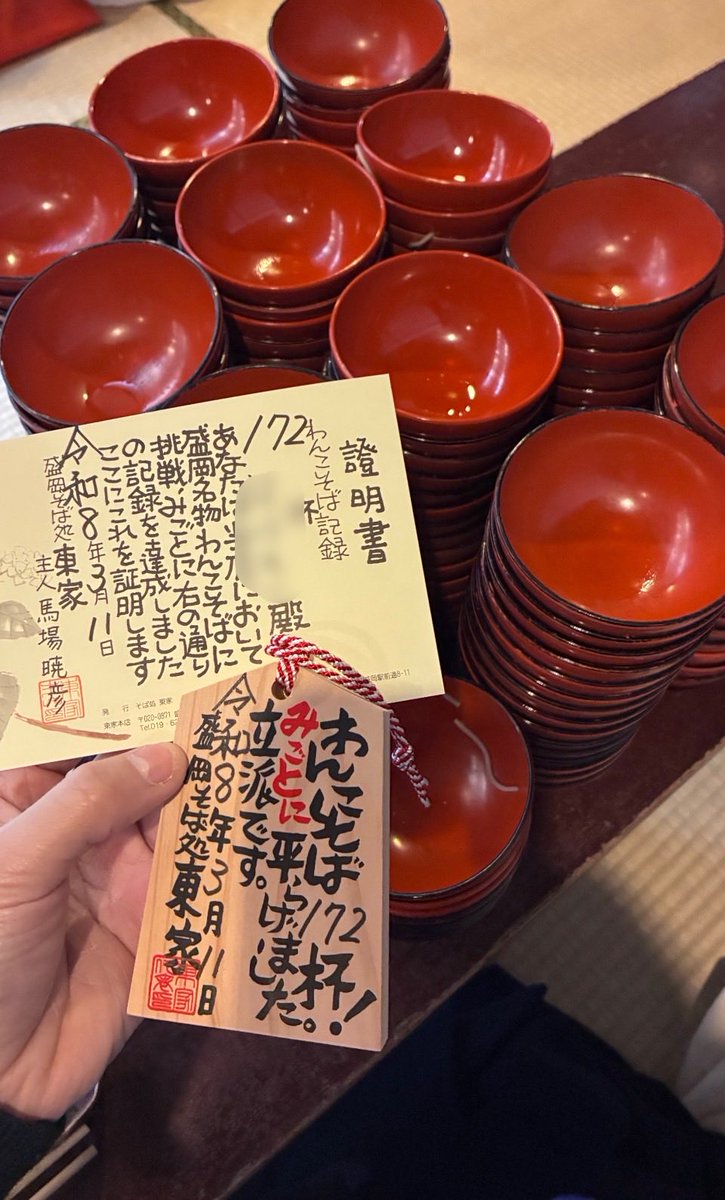 證明書
わんこそば記録
172
殿
あなたは当店において
盛岡名物わんこそばに
挑戦みごとに右の通り
の記録を達成しました
ここにこれを証明します
令和8年3月11日
盛岡そば処 東家
主人 馬場暁彦
発行 そば処 東家
東家本店 〒020-0871
わんこそば172杯!
みごとに平らげました。
立派です。
令和8年3月11日
盛岡そば処東家